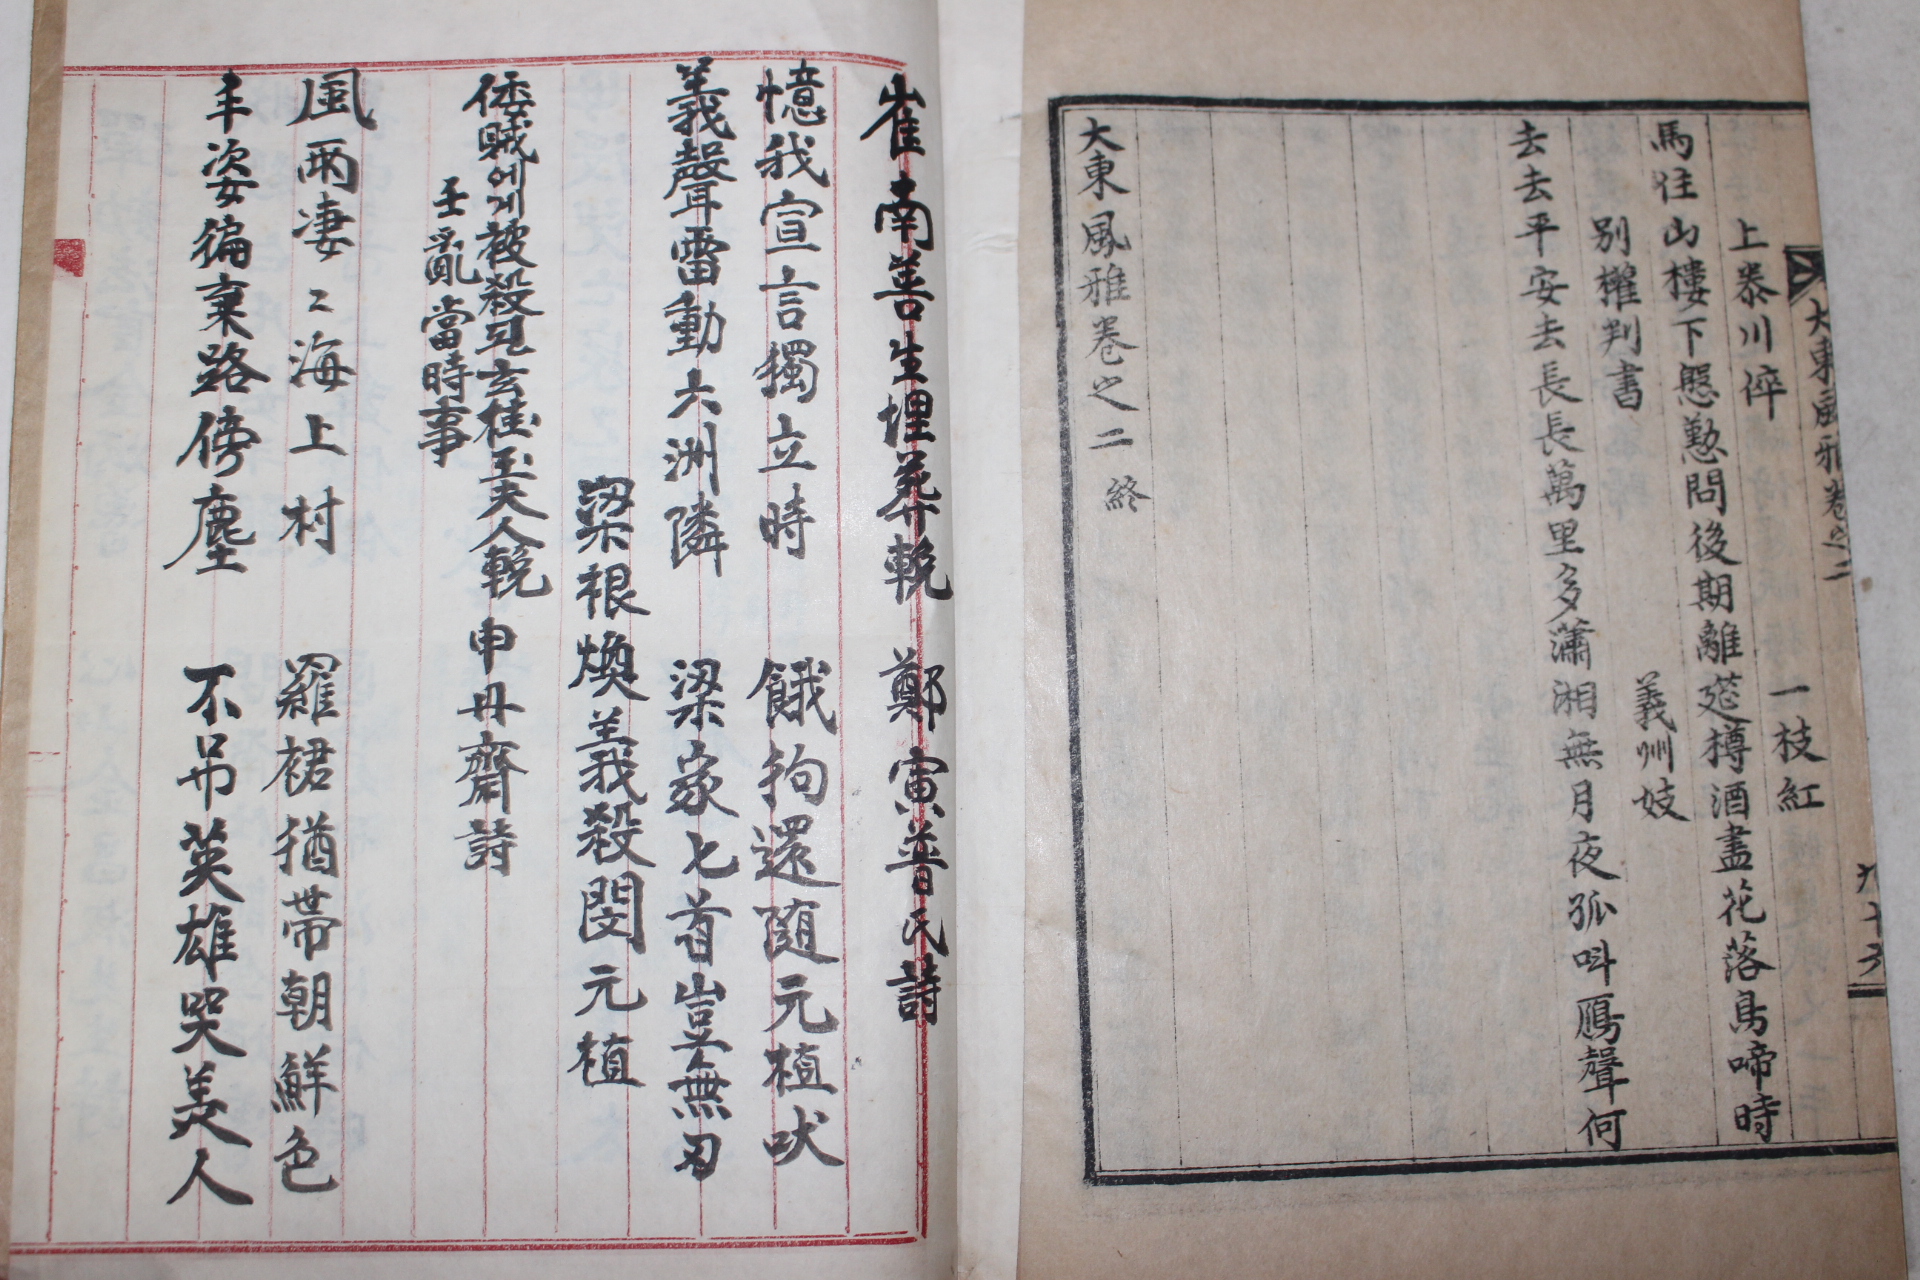 大東風雅卷之二
上泰川倅
一枝紅
馬住山樓下慇懃問後期離莚樽酒盡花落鳥啼時
別權判書
義州妓
去去平安去長長萬里多瀟湘無月夜孤呌鴈聲何
大東風雅卷之二 終
崔南善生埋葬輓 鄭寅普氏詩
憶我宣言獨立時 餓拘還随元植吠
義聲雷動六洲隣 梁家匕首豈無刃
梁根煥義殺閔元植
倭賊에게被殺見玄桂玉夫人輓 申丹齋詩
壬亂當時事
風雨凄〻海上村 羅裙猶帶朝鮮色
丰姿徧棄路傍塵 不吊英雄哭美人